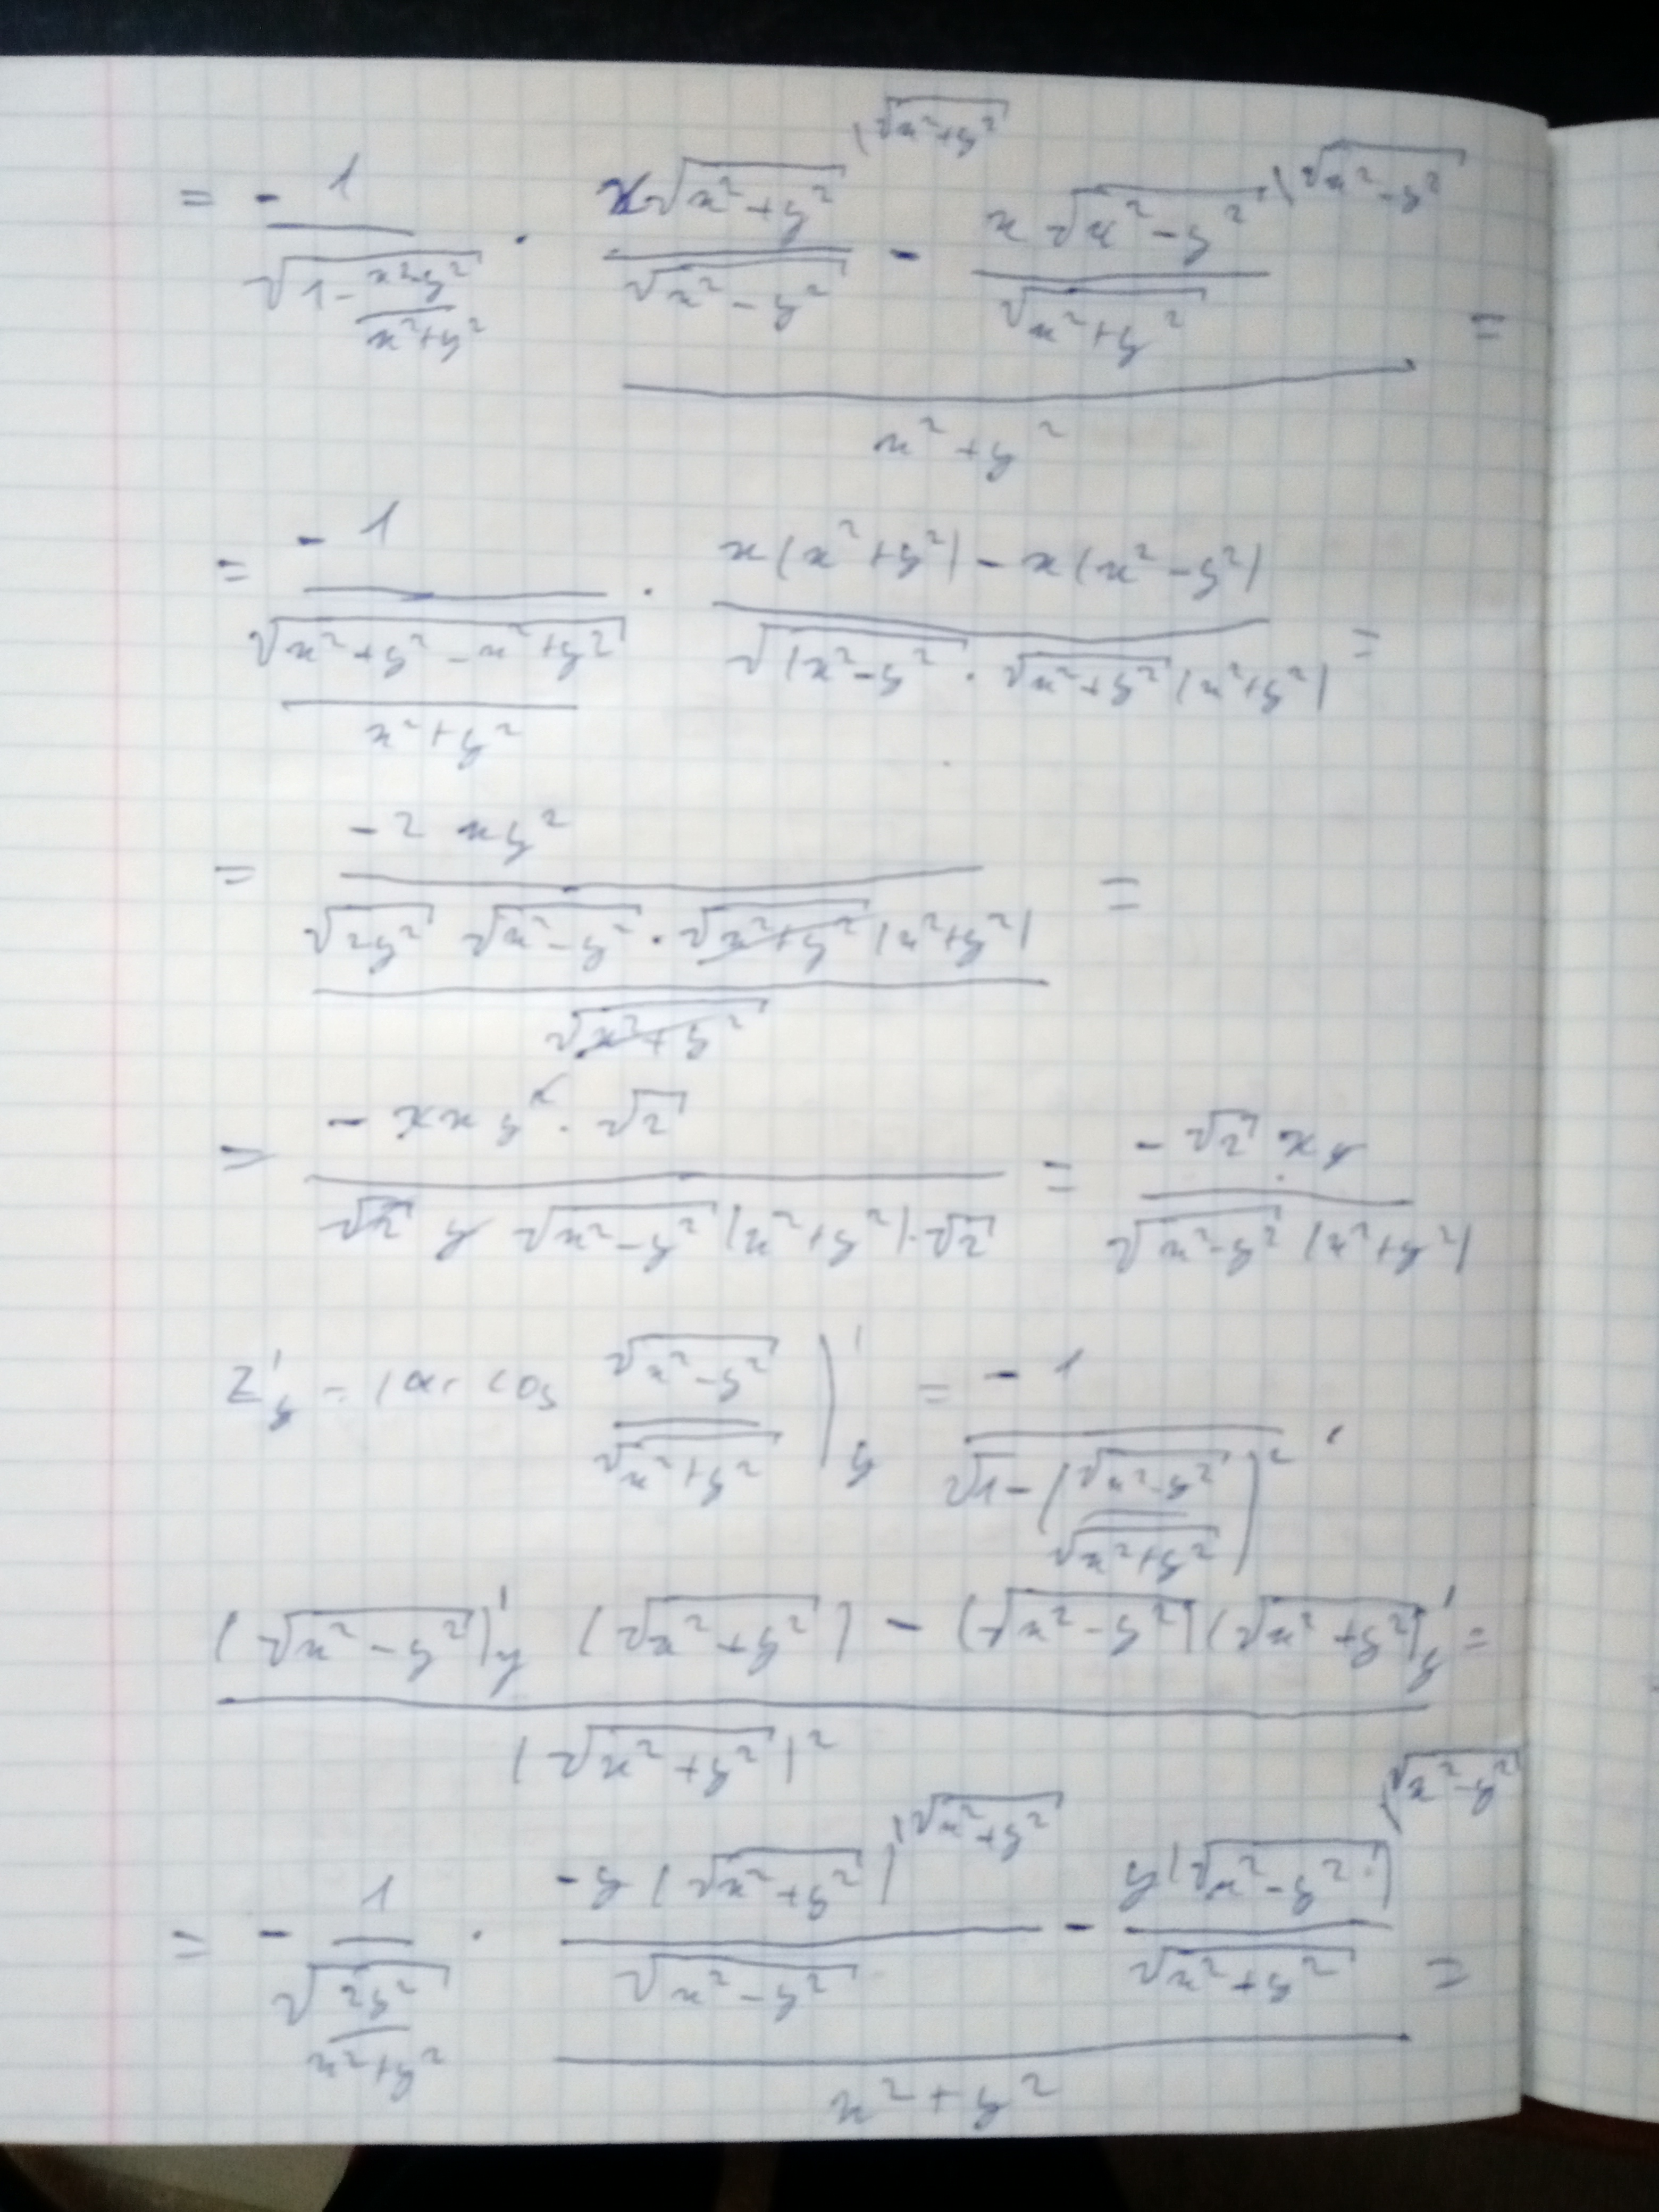 = - 1 / √(1 - (x²-y²)/(x²+y²)) · (x√(x²+y²) / √(x²-y²) ^(√(x²+y²) - x√(x²-y²) / √(x²+y²) ^(√(x²-y²)) / (x²+y²) =
= -1 / (√(x²+y²-x²+y²) / (x²+y²)) · (x(x²+y²) - x(x²-y²)) / (√(x²-y²) · √(x²+y²) (x²+y²)) =
= -2xy² / (√(2y²) √(x²-y²) · √(x²+y²) (x²+y²) / √(x²+y²)) =
= -2xy² · √2 / (√2 y √(x²-y²) (x²+y²) · √2) = -√2 xy / (√(x²-y²) (x²+y²))
z'y = (arccos √(x²-y²) / √(x²+y²))'y = -1 / √(1 - (√(x²-y²) / √(x²+y²))²) ·
((√(x²-y²))'y (√(x²+y²)) - (√(x²-y²)) (√(x²+y²))'y) / (√(x²+y²))² =
= - 1 / √(2y² / (x²+y²)) · (-y(√(x²+y²)) / √(x²-y²) ^(√(x²+y²) - y(√(x²-y²)) / √(x²+y²) ^(√(x²-y²)) / (x²+y²) =